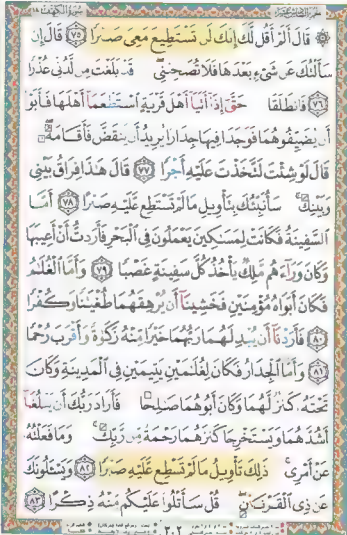 سورة الكهف ١٨
قَالَ أَلَمْ أَقُل لَّكَ إِنَّكَ لَن تَسْتَطِيعَ مَعِىَ صَبْرًا ٧٥ قَالَ إِن
سَأَلْتُكَ عَن شَىْءٍۭ بَعْدَهَا فَلَا تُصَٰحِبْنِى ۖ قَدْ بَلَغْتَ مِن لَّدُنِّى عُذْرًا
٧٦ فَٱنطَلَقَا حَتَّىٰٓ إِذَآ أَتَيَآ أَهْلَ قَرْيَةٍ ٱسْتَطْعَمَآ أَهْلَهَا فَأَبَوْا۟
أَن يُضَيِّفُوهُمَا فَوَجَدَا فِيهَا جِدَارًا يُرِيدُ أَن يَنقَضَّ فَأَقَامَهُۥ ۖ
قَالَ لَوْ شِئْتَ لَتَّخَذْتَ عَلَيْهِ أَجْرًا ٧٧ قَالَ هَٰذَا فِرَاقُ بَيْنِى
وَبَيْنِكَ ۚ سَأُنَبِّئُكَ بِتَأْوِيلِ مَا لَمْ تَسْتَطِع عَّلَيْهِ صَبْرًا ٧٨ أَمَّا
ٱلسَّفِينَةُ فَكَانَتْ لِمَسَٰكِينَ يَعْمَلُونَ فِى ٱلْبَحْرِ فَأَرَدتُّ أَنْ أَعِيبَهَا
وَكَانَ وَرَآءَهُم مَّلِكٌ يَأْخُذُ كُلَّ سَفِينَةٍ غَصْبًا ٧٩ وَأَمَّا ٱلْغُلَٰمُ
فَكَانَ أَبَوَاهُ مُؤْمِنَيْنِ فَخَشِينَآ أَن يُرْهِقَهُمَا طُغْيَٰنًا وَكُفْرًا
٨٠ فَأَرَدْنَآ أَن يُبْدِلَهُمَا رَبُّهُمَا خَيْرًا مِّنْهُ زَكَوٰةً وَأَقْرَبَ رُحْمًا
٨١ وَأَمَّا ٱلْجِدَارُ فَكَانَ لِغُلَٰمَيْنِ يَتِيمَيْنِ فِى ٱلْمَدِينَةِ وَكَانَ
تَحْتَهُۥ كَنزٌ لَّهُمَا وَكَانَ أَبُوهُمَا صَٰلِحًا فَأَرَادَ رَبُّكَ أَن يَبْلُغَآ
أَشُدَّهُمَا وَيَسْتَخْرِجَا كَنزَهُمَا رَحْمَةً مِّن رَّبِّكَ ۚ وَمَا فَعَلْتُهُۥ
عَنْ أَمْرِى ۚ ذَٰلِكَ تَأْوِيلُ مَا لَمْ تَسْطِع عَّلَيْهِ صَبْرًا ٨٢ وَيَسْـَٔلُونَكَ
عَن ذِى ٱلْقَرْنَيْنِ ۖ قُلْ سَأَتْلُوا۟ عَلَيْكُم مِّنْهُ ذِكْرًا ٨٣
٣٠٢